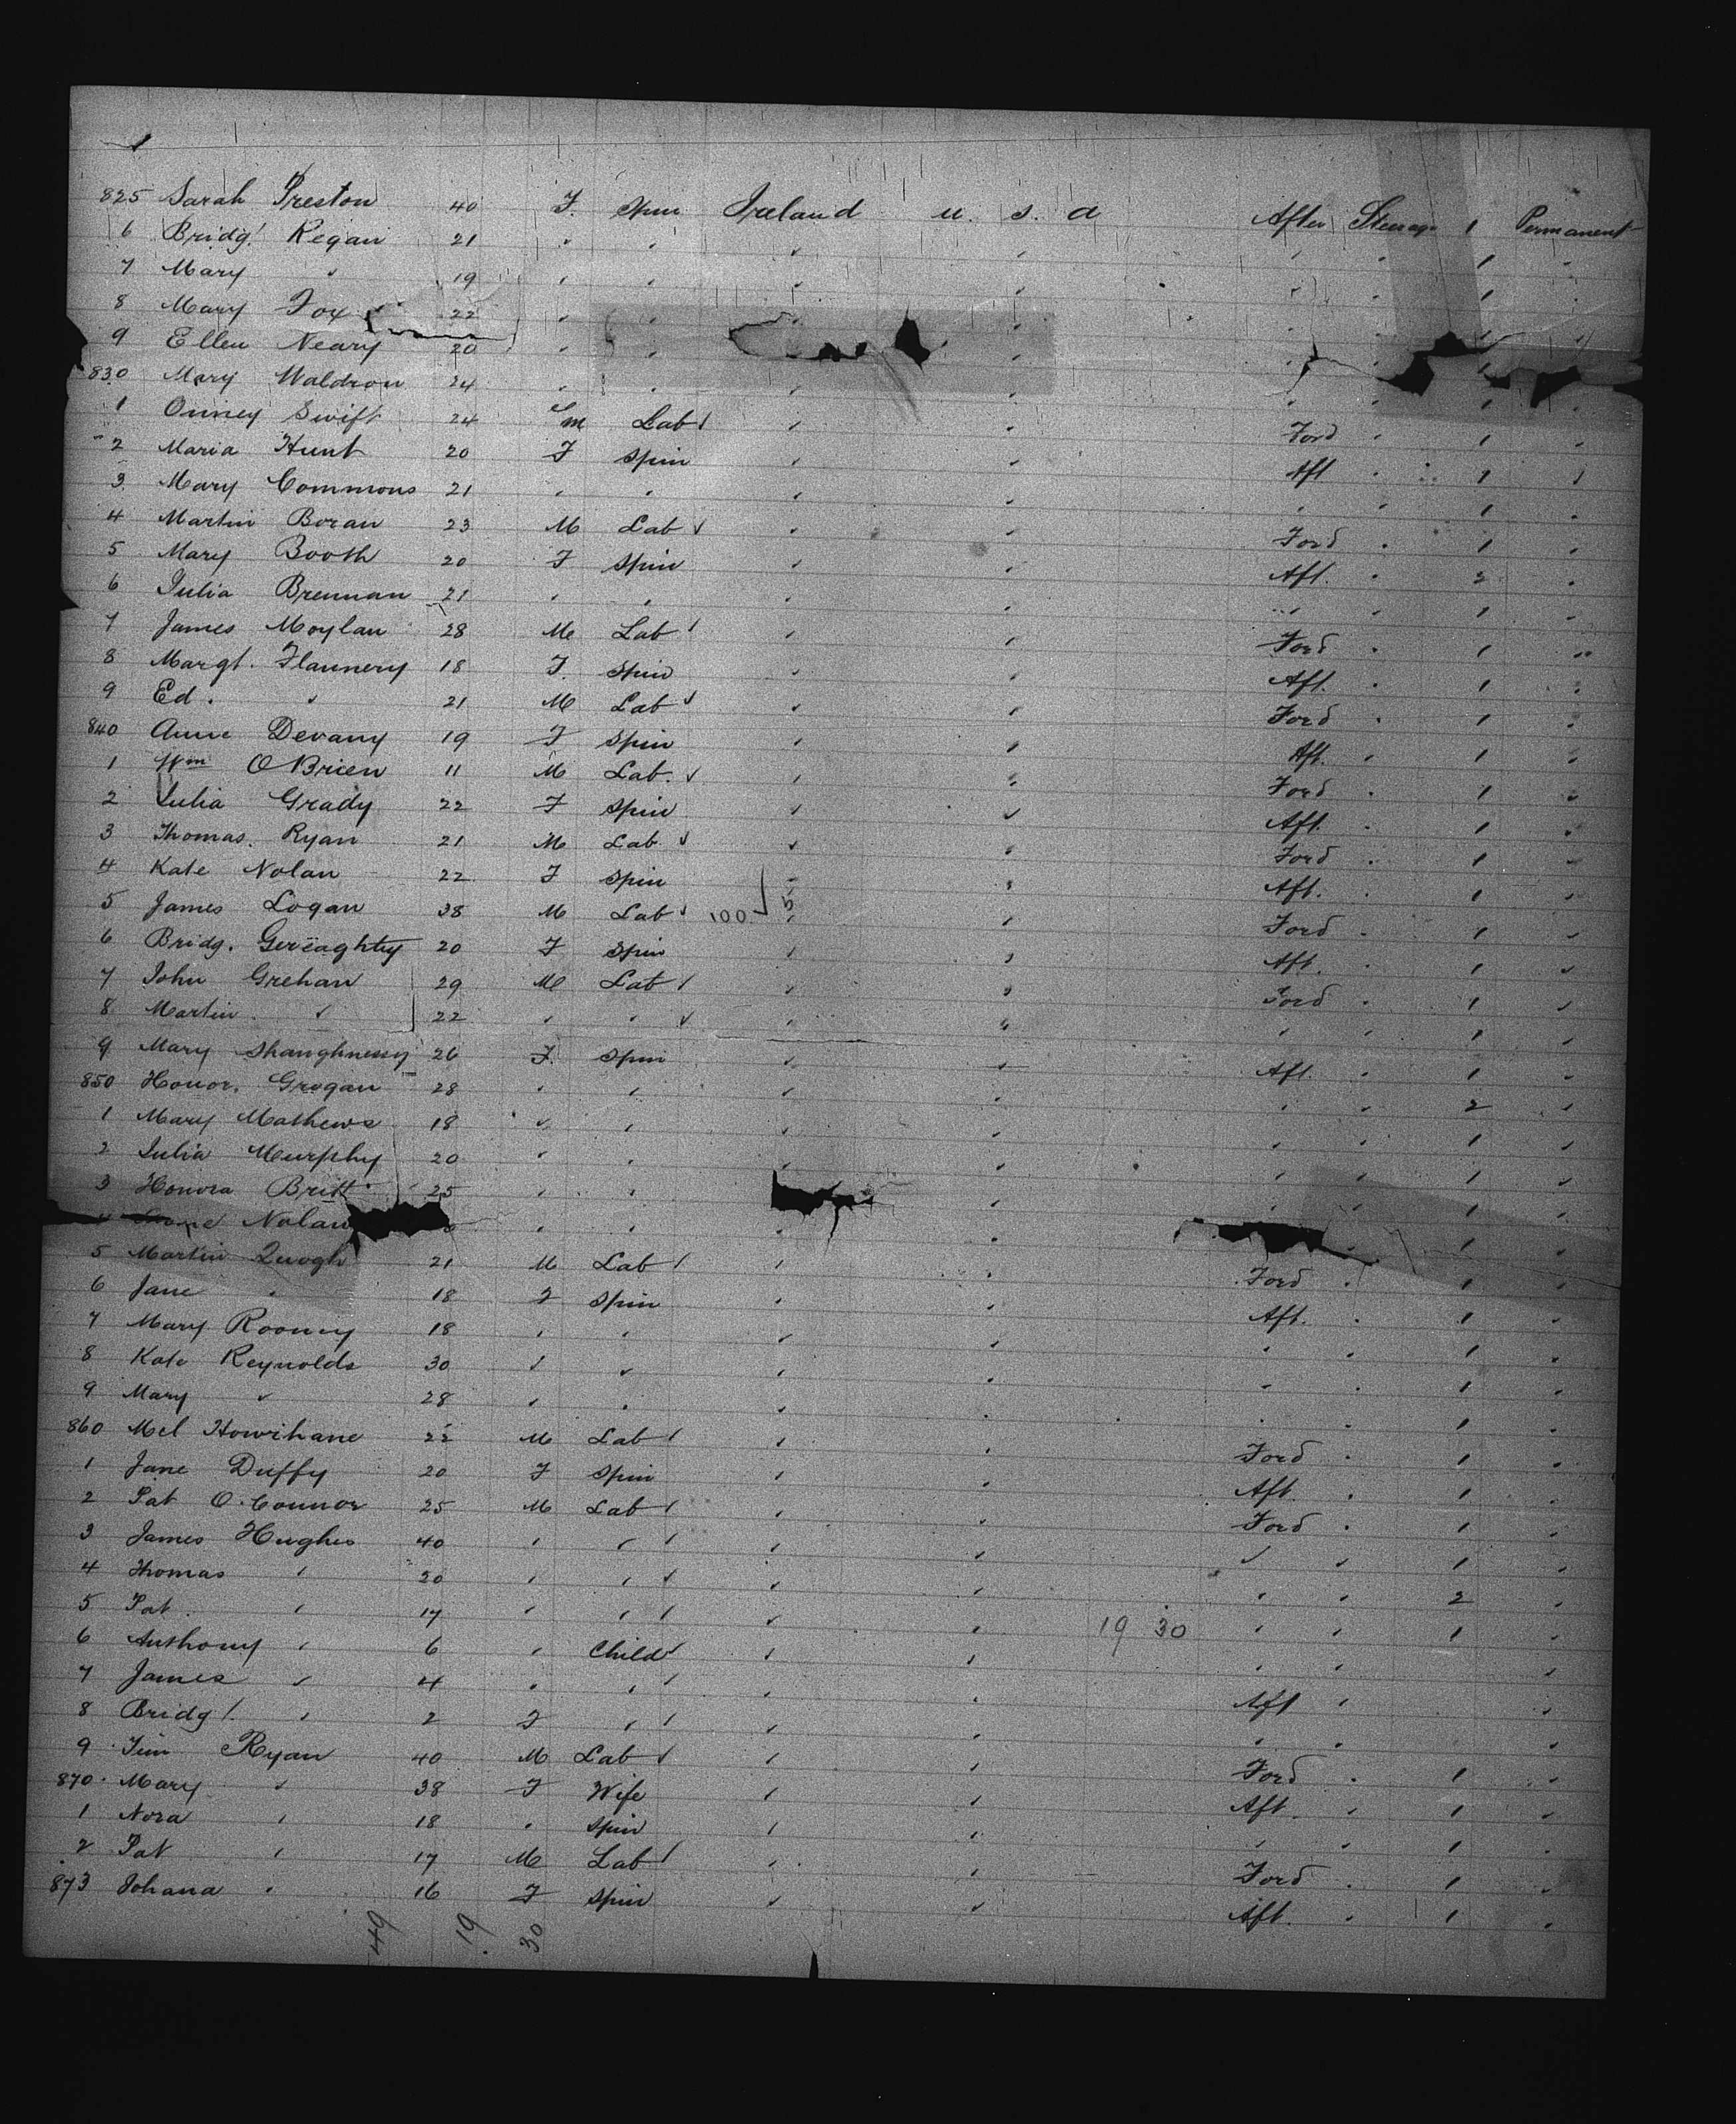 825 Sarah Preston 40 F. Spin Ireland U. S. A After Steerage 1 Permanent
6 Bridgt Regan 21 " " " " " " 1 "
7 Mary " 19 " " " " " " 1 "
8 Mary Fox 22 " " " " " " 1 "
9 Ellen Neary 20 " " " " " 1
830 Mary Waldron 24 " " " " " " 1 "
1 Swift 24 m Lab " " Ford " 1 "
2 Maria Hunt 20 F Spin " " Aft " 1 "
3 Mary Commons 21 " " " " " " 1 "
4 Martin Boran 23 M Lab " " Ford " 1 "
5 Mary Booth 20 F Spin " " Aft. " 2 "
6 Julia Brennan 21 " " " " " " 1 "
7 James Moylan 28 M Lab " " Ford " 1 "
8 Margt. Flannery 18 F. Spin " " Aft. " 1 "
9 Ed. " 21 M Lab " " Ford " 1 "
840 Anne Devany 19 F Spin " " Aft. " 1 "
1 Wm O Brien 11 M Lab. " " Ford " 1 "
2 Julia Grady 22 F Spin " " Aft. " 1 "
3 Thomas. Ryan 21 M Lab " " Ford " 1 "
4 Kate Nolan 22 F Spin " " Aft. " 1 "
5 James Logan 38 M Lab 100 " " Ford " 1 "
6 Bridg. Gereaghty 20 F Spin " " Aft. " 1 "
7 John Grehan 29 M Lab " " Ford " 1 "
8 Martin " 22 " " " " " " 1 "
9 Mary Shaughnessy 26 F. Spin " " Aft. " 1 "
850 Honor. Grogan 28 " " " " " " 2 "
1 Mary Mathews 18 " " " " " " 1 "
2 Julia Murphy 20 " " " " " " 1 "
3 Honora Britt 25 " " " " " 1 "
4 Nolan " " " " " 1 "
5 Martin Quogh 21 M Lab " " Ford " 1 "
6 Jane " 18 F Spin " " Aft. " 1 "
7 Mary Rooney 18 " " " " " " 1 "
8 Kate Reynolds 30 " " " " " " 1 "
9 Mary " 28 " " " " " " 1 "
860 Mcl Howrihane 22 M Lab " " Ford " 1 "
1 Jane Duffy 20 F Spin " " Aft. " 1 "
2 Pat O'Connor 25 M Lab " " Ford " 1 "
3 James Hughes 40 " " " " " " 1 "
4 Thomas " 20 " " " " " " 2 "
5 Pat " 17 " " " " 19 30 " " 1 "
6 Anthony " 6 " Child " " " " "
7 James " 4 " " " " Aft " "
8 Bridgt. " 2 F " " " " " "
9 Tim Ryan 40 M Lab " " Ford " 1 "
870 Mary " 38 F Wife " " Aft. " 1 "
1 Nora " 18 " Spin " " " " 1 "
2 Pat " 17 M Lab " " Ford " 1 "
873 Johana " 16 F Spin " " Aft. " 1 "
49 19 30